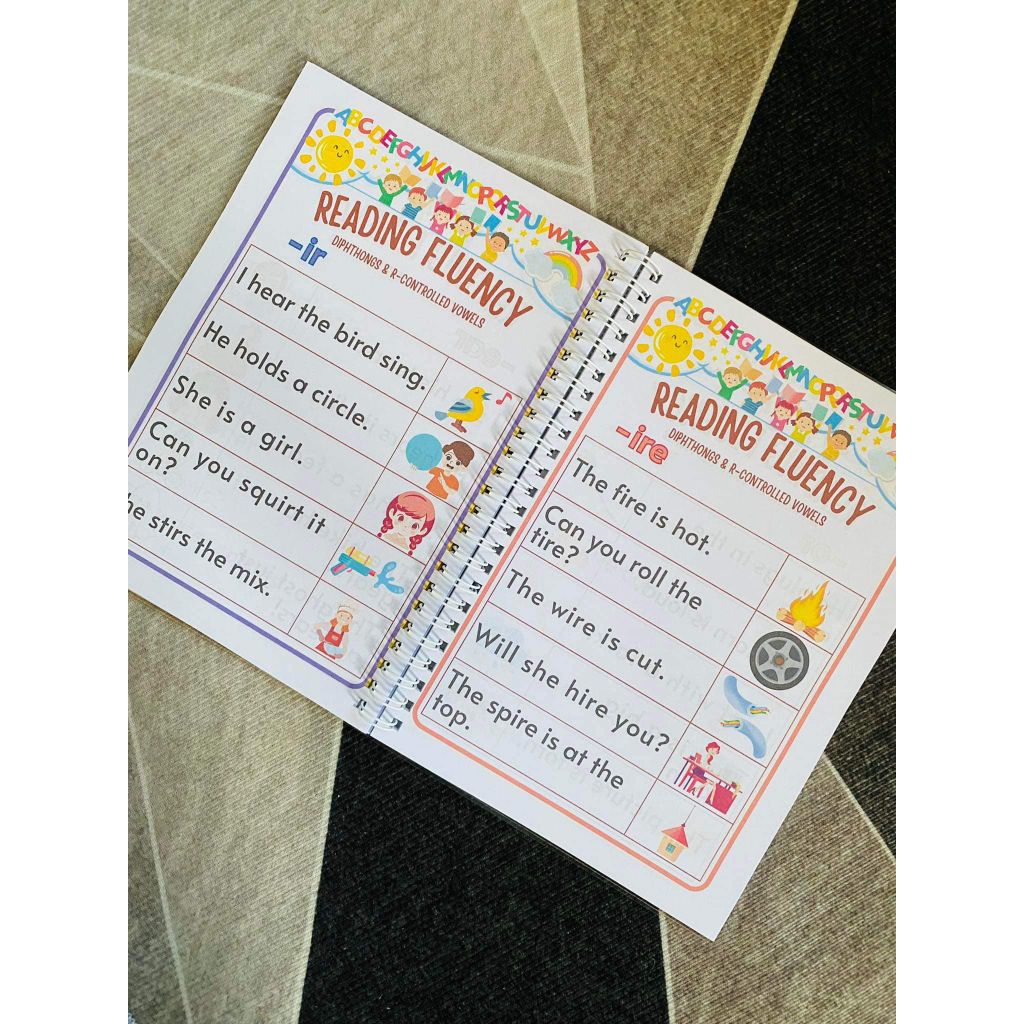 ABCDEFGHIJKLMNOPQRSTUVWXYZ
READING FLUENCY
DIPHTHONGS & R-CONTROLLED VOWELS
-ir
I hear the bird sing.
He holds a circle.
She is a girl.
Can you squirt it
on?
he stirs the mix.
ABCDEFGHIJKLMNOPQRSTUVW
READING FLUENCY
DIPHTHONGS & R-CONTROLLED VOWELS
-ire
The fire is hot.
Can you roll the
tire?
The wire is cut.
Will she hire you?
The spire is at the
top.